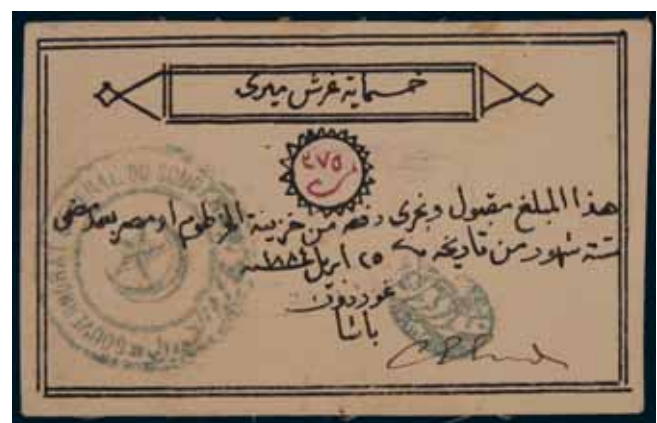 خمسماية غرش ميرى
٢٧٥
هذا المبلغ مقبول ويجرى دفعه من خزينة الخرطوم او مصر بعد مضى
ستة شهور من تاريخه ٢٥ ابريل ١٨٨٤ سنة
غوردون
باشا